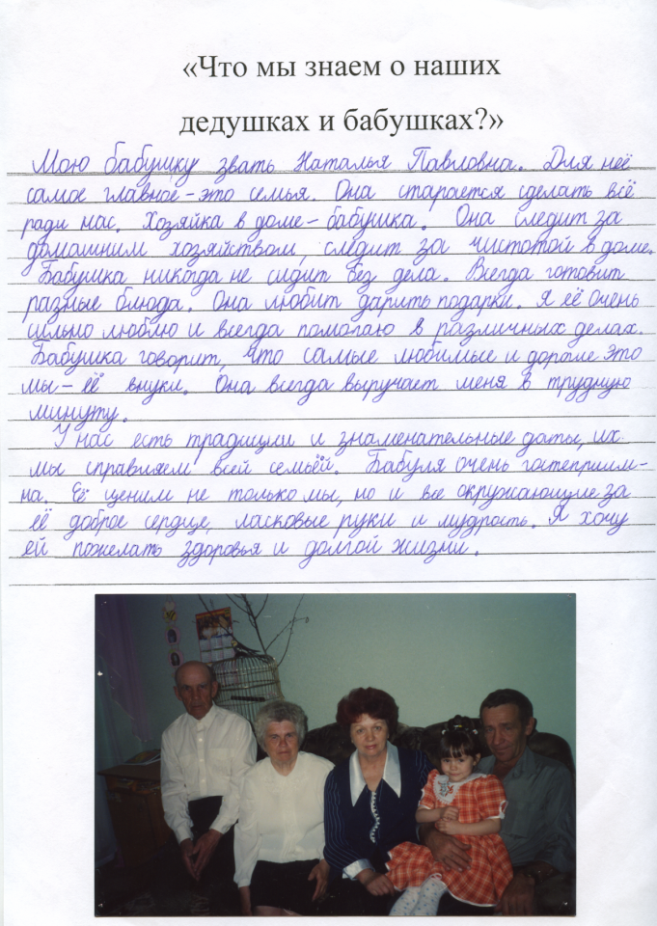 «Что мы знаем о наших
дедушках и бабушках?»
Мою бабушку звать Наталья Павловна. Для неё
самое главное - это семья. Она старается сделать всё
ради нас. Хозяйка в доме - бабушка. Она следит за
домашним хозяйством, следит за чистотой в доме.
Бабушка никогда не сидит без дела. Всегда готовит
разные блюда. Она любит дарить подарки. Я её очень
сильно люблю и всегда помогаю в различных делах.
Бабушка говорит, что самые любимые и дорогие это
мы - её внуки. Она всегда выручает меня в трудную
минуту.
У нас есть традиции и знаменательные даты, их
мы справляем всей семьёй. Бабуля очень гостеприим-
на. Её ценим не только мы, но и все окружающие за
её доброе сердце, ласковые руки и мудрость. Я хочу
ей пожелать здоровья и долгой жизни.